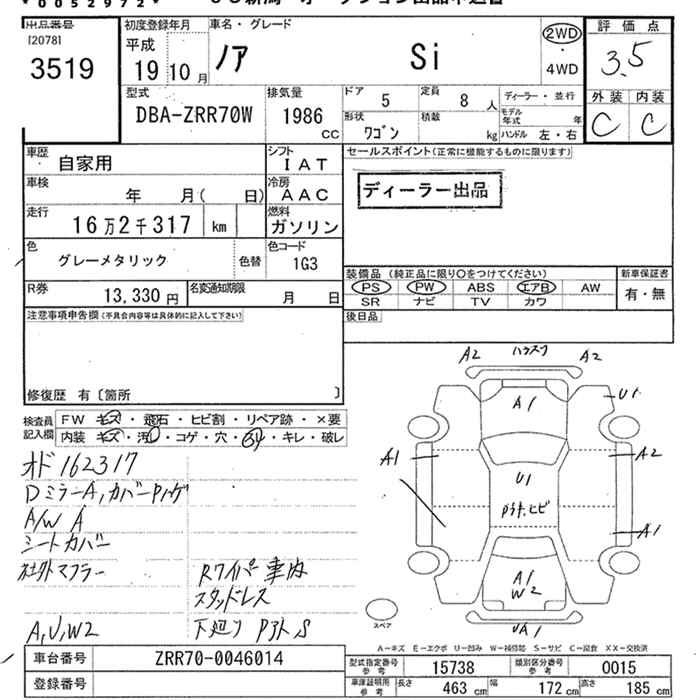 *0052972*
出品番号
[2078]
3519
初度登録年月
平成
19 10 月
車名・グレード
ノア Si
2WD
・
4WD
評価点
3.5
外装 内装
C C
型式
DBA-ZRR70W
排気量
1986
CC
ドア 5
定員 8 人
形状 ワゴン
積載 kg
ディーラー・並行
モデル年式 年
ハンドル 左・右
車歴
自家用
シフト
IAT
車検
年 月( 日)
冷房
AAC
走行
16万2千317 km
燃料
ガソリン
色
グレーメタリック
色替
色コード
1G3
R券
13,330 円
名変通知期限
月 日
セールスポイント(正常に機能するものに限ります)
ディーラー出品
装備品(純正品に限り○をつけてください)
PS PW ABS エアB AW
SR ナビ TV カワ
新車保証書
有・無
後日品
注意事項申告欄(不具合内容等は具体的に記入して下さい)
修復歴 有〔箇所 〕
検査員
記入欄
FW キズ・飛石・ヒビ割・リペア跡・×要
内装 キズ・汚れ・コゲ・穴・スレ・キレ・破レ
オド162317
DミラーA,カバー
A/W A
シートカバー
社外マフラー
Rワイパー車内
スタッドレス
A,U,W2
下廻り P外,S
A2 A2
A1
U1
A1
A2
U1
P外,ヒビ
A1
A1
W2
UA1
スペア
A-キズ E-エクボ U-凹み W-補修跡 S-サビ C-腐食 XX-交換済
車台番号
ZRR70-0046014
登録番号
型式指定番号
参考
15738
類別区分番号
参考
0015
車庫証明用
参考
長さ 463 cm
幅 172 cm
高さ 185 cm